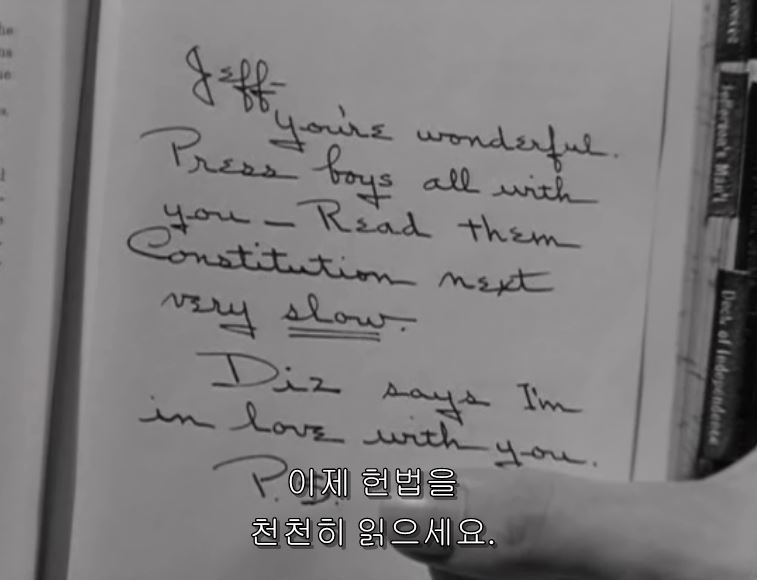 Jeff-
you're wonderful.
Press boys all with
you — Read them
Constitution next
very slow.
Diz says I'm
in love with you.
P.
이제 헌법을
천천히 읽으세요.
Decl. of Independence